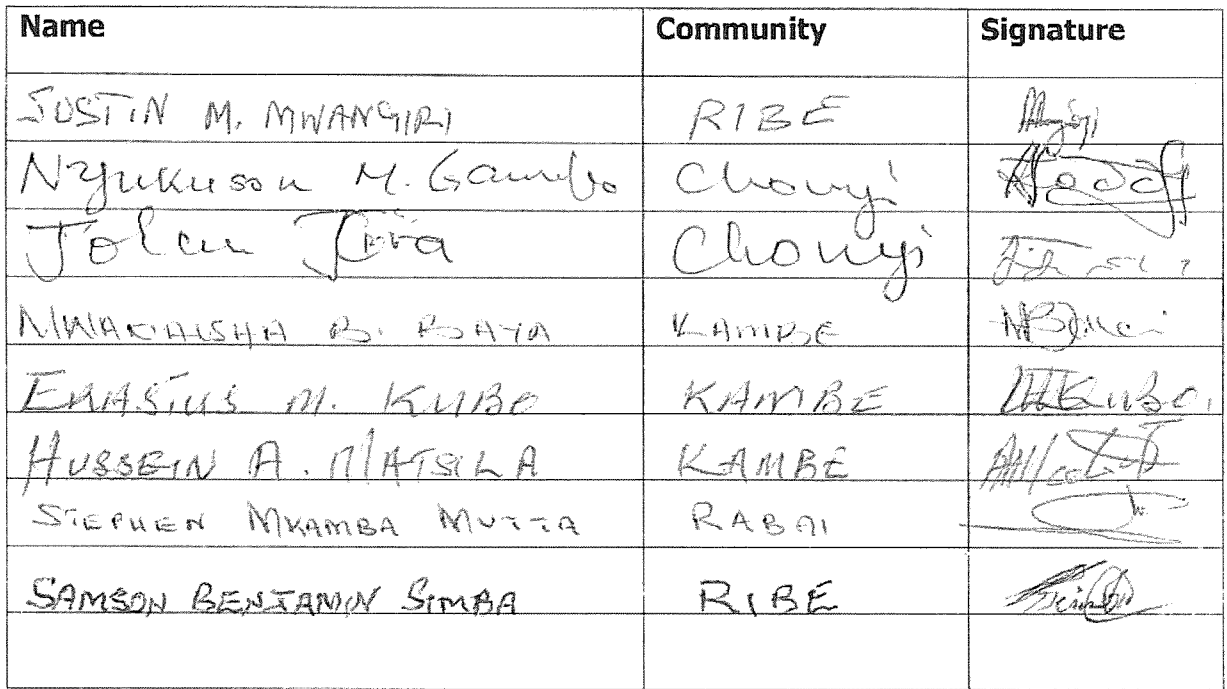 Name Community Signature
JUSTIN M. MWANGIRI RIBE
Nyukuson M. Gambo Chonyi
Chonyi
MWAKAISHA B. BAYA KAMBE
ERASTUS M. KUBO KAMBE MKUBO.
HUSSEIN A. MATSILA KAMBE
STEPHEN MKAMBA MUTTA RABAI
SAMSON BENJAMIN SIMBA RIBE